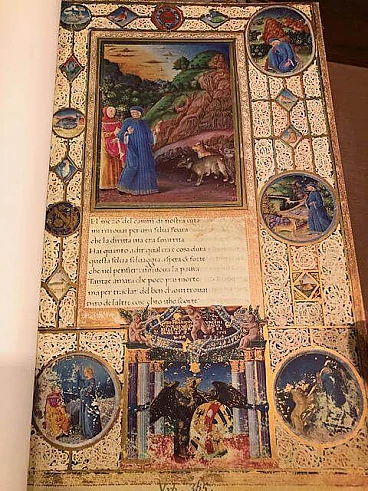 El mezo del camin di nostra uita
mi ritrouai per una selua scura
che la diritta uia era smarrita
Hai quanto adir qual era e cosa dura
questa selua seluaggia aspra et forte
che nel pensier rinnuoua la paura
Tante amara che poco piu morte
ma per tractar del ben chio ui trouai
diro de laltre cose chio uho scorte
Urb. 365.